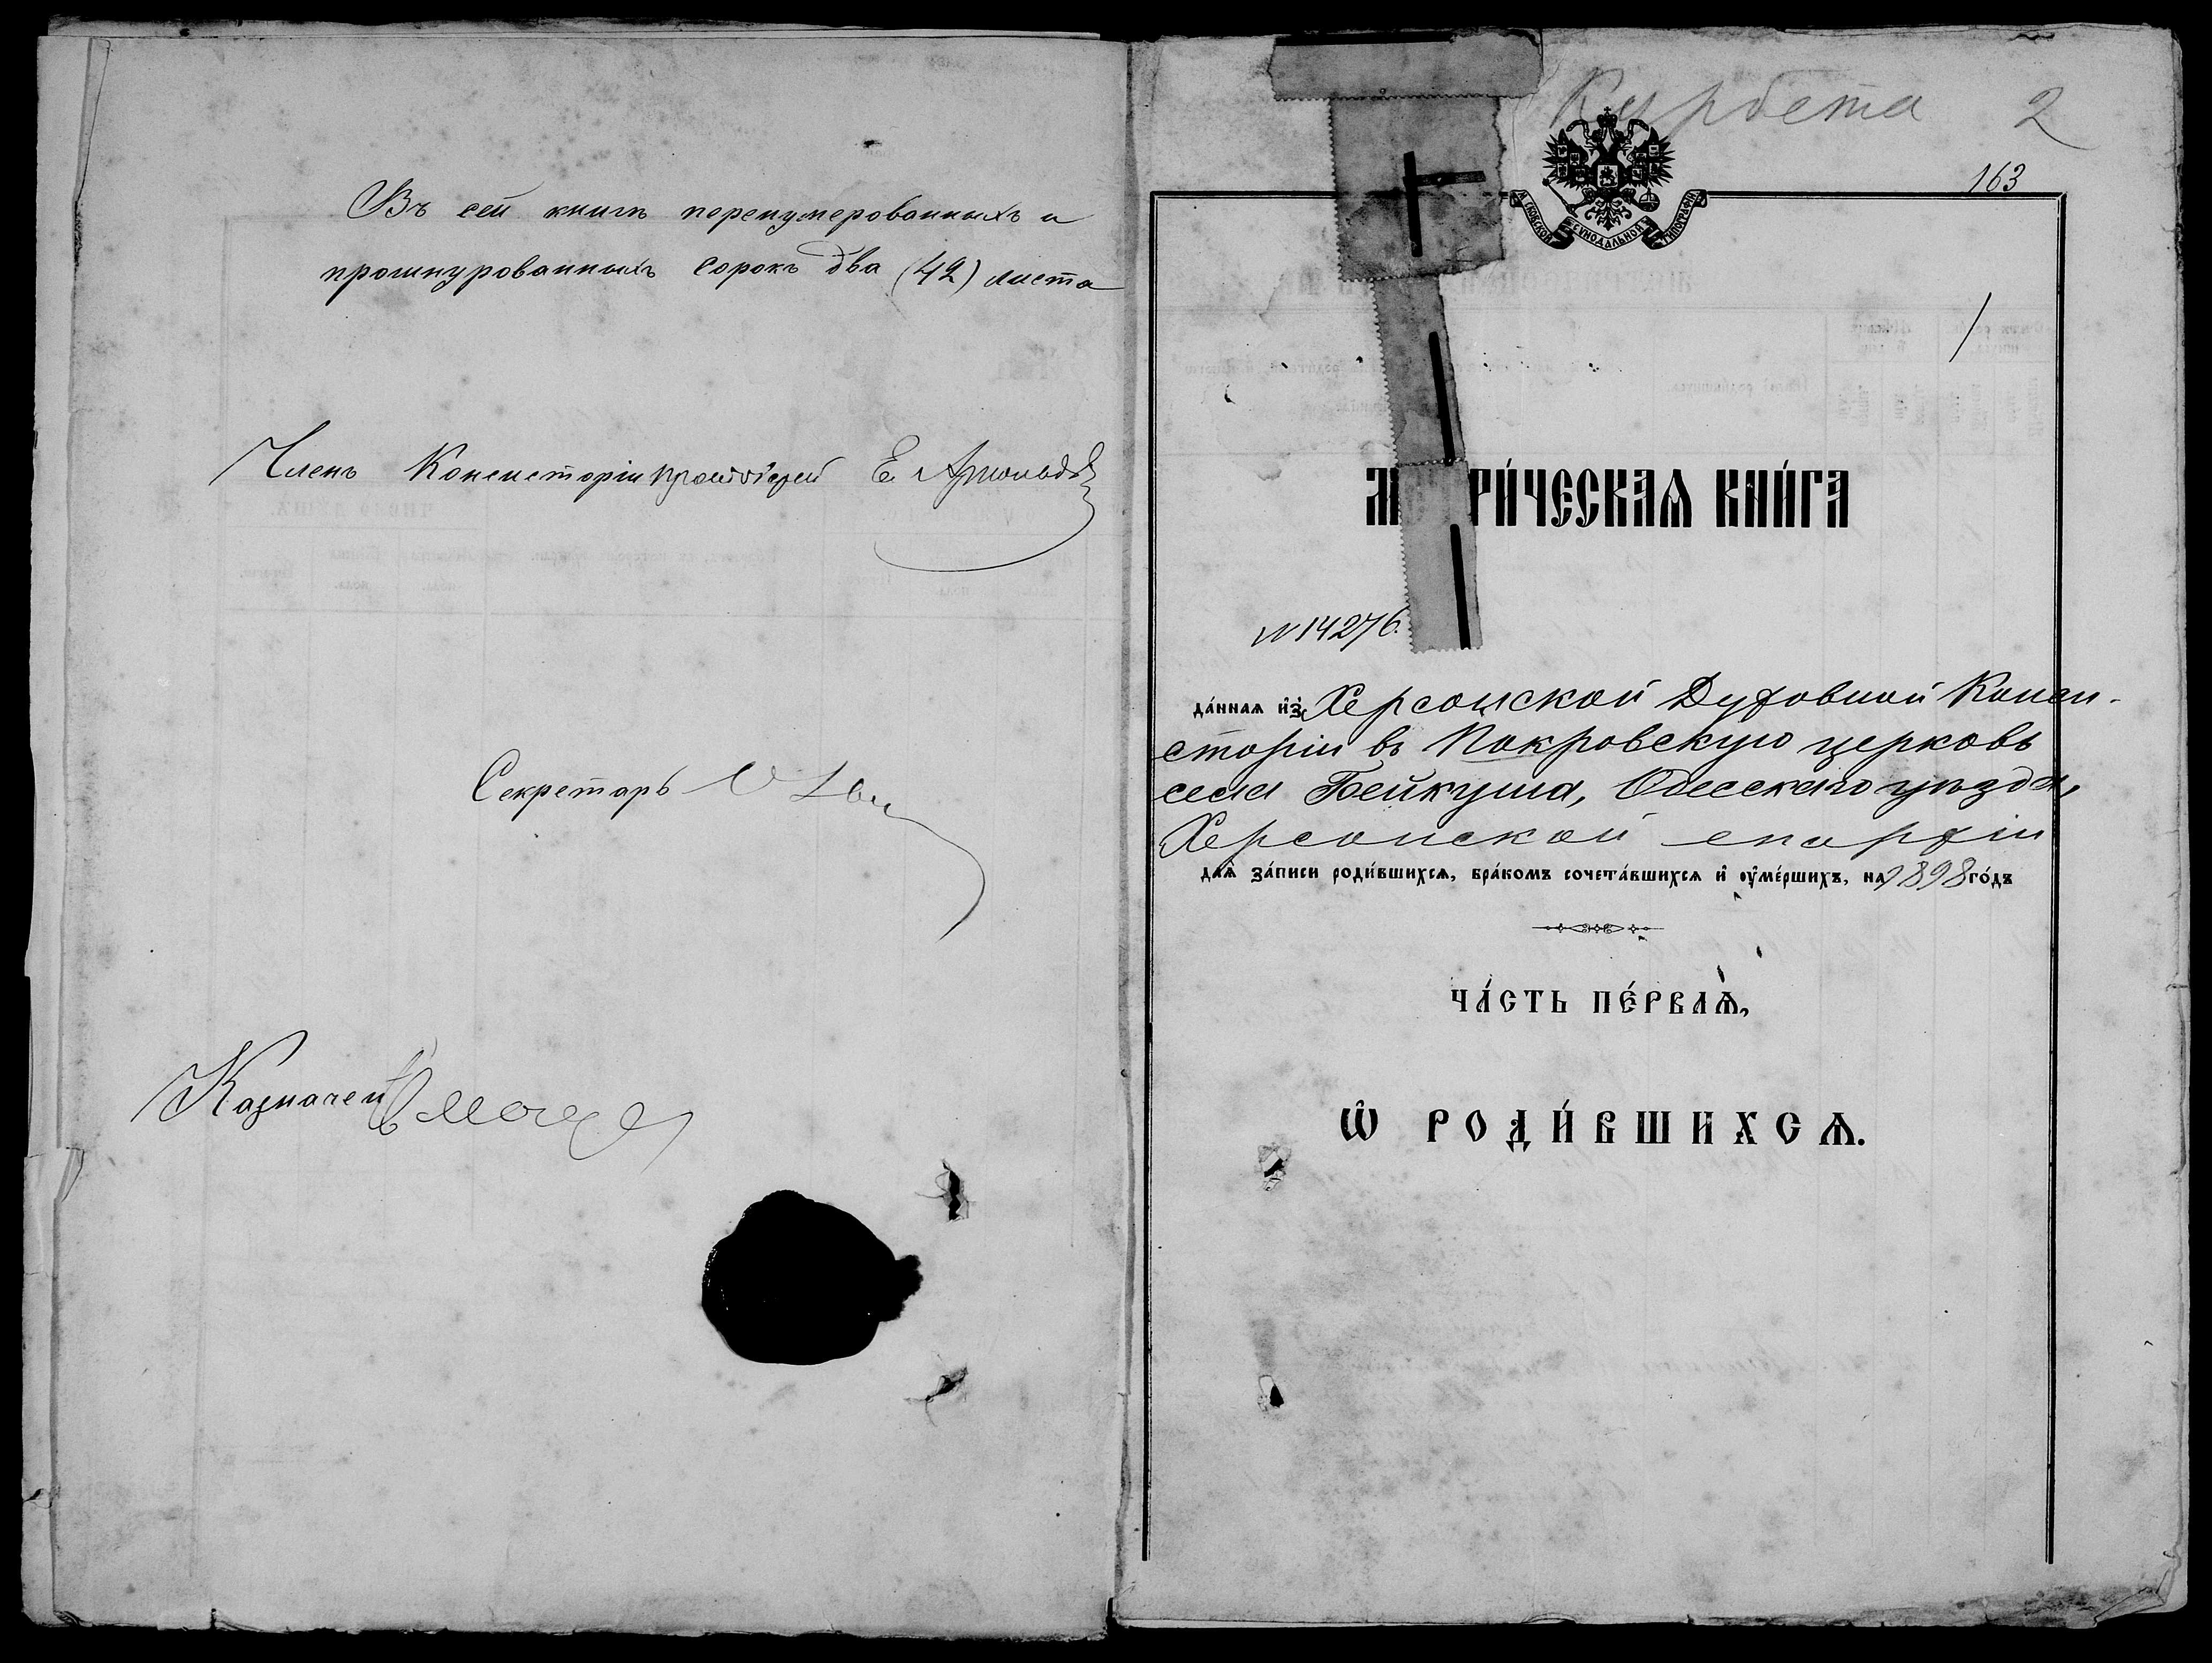 Въ сей книгѣ перенумерованныхъ и
прошнурованныхъ сорокъ два (42) листа
Членъ Консисторіи протоіерей Е. Арнольдъ
Секретарь
Казначей
Курбета 2
163
МОСКОВСКОЙ СѴНОДАЛЬНОЙ ТИПОГРАФІИ
1
М РИ́ЧЕСКАѦ КНИ́ГА
N 14276.
да́ннаѧ и҆з̾ Херсонской Духовной Конси-
сторіи въ Покровскую церковь
села Бейкуша, Одесскаго уѣзда,
Херсонской епархіи
длѧ̀ за́писи роди́вшихсѧ, бра́комъ сочета́вшихсѧ и҆ ᲂу҆ме́ршихъ, на 1898 го́дъ
ЧА́СТЬ ПЕ́РВАѦ,
Ѽ РОДИ́ВШИХСѦ.